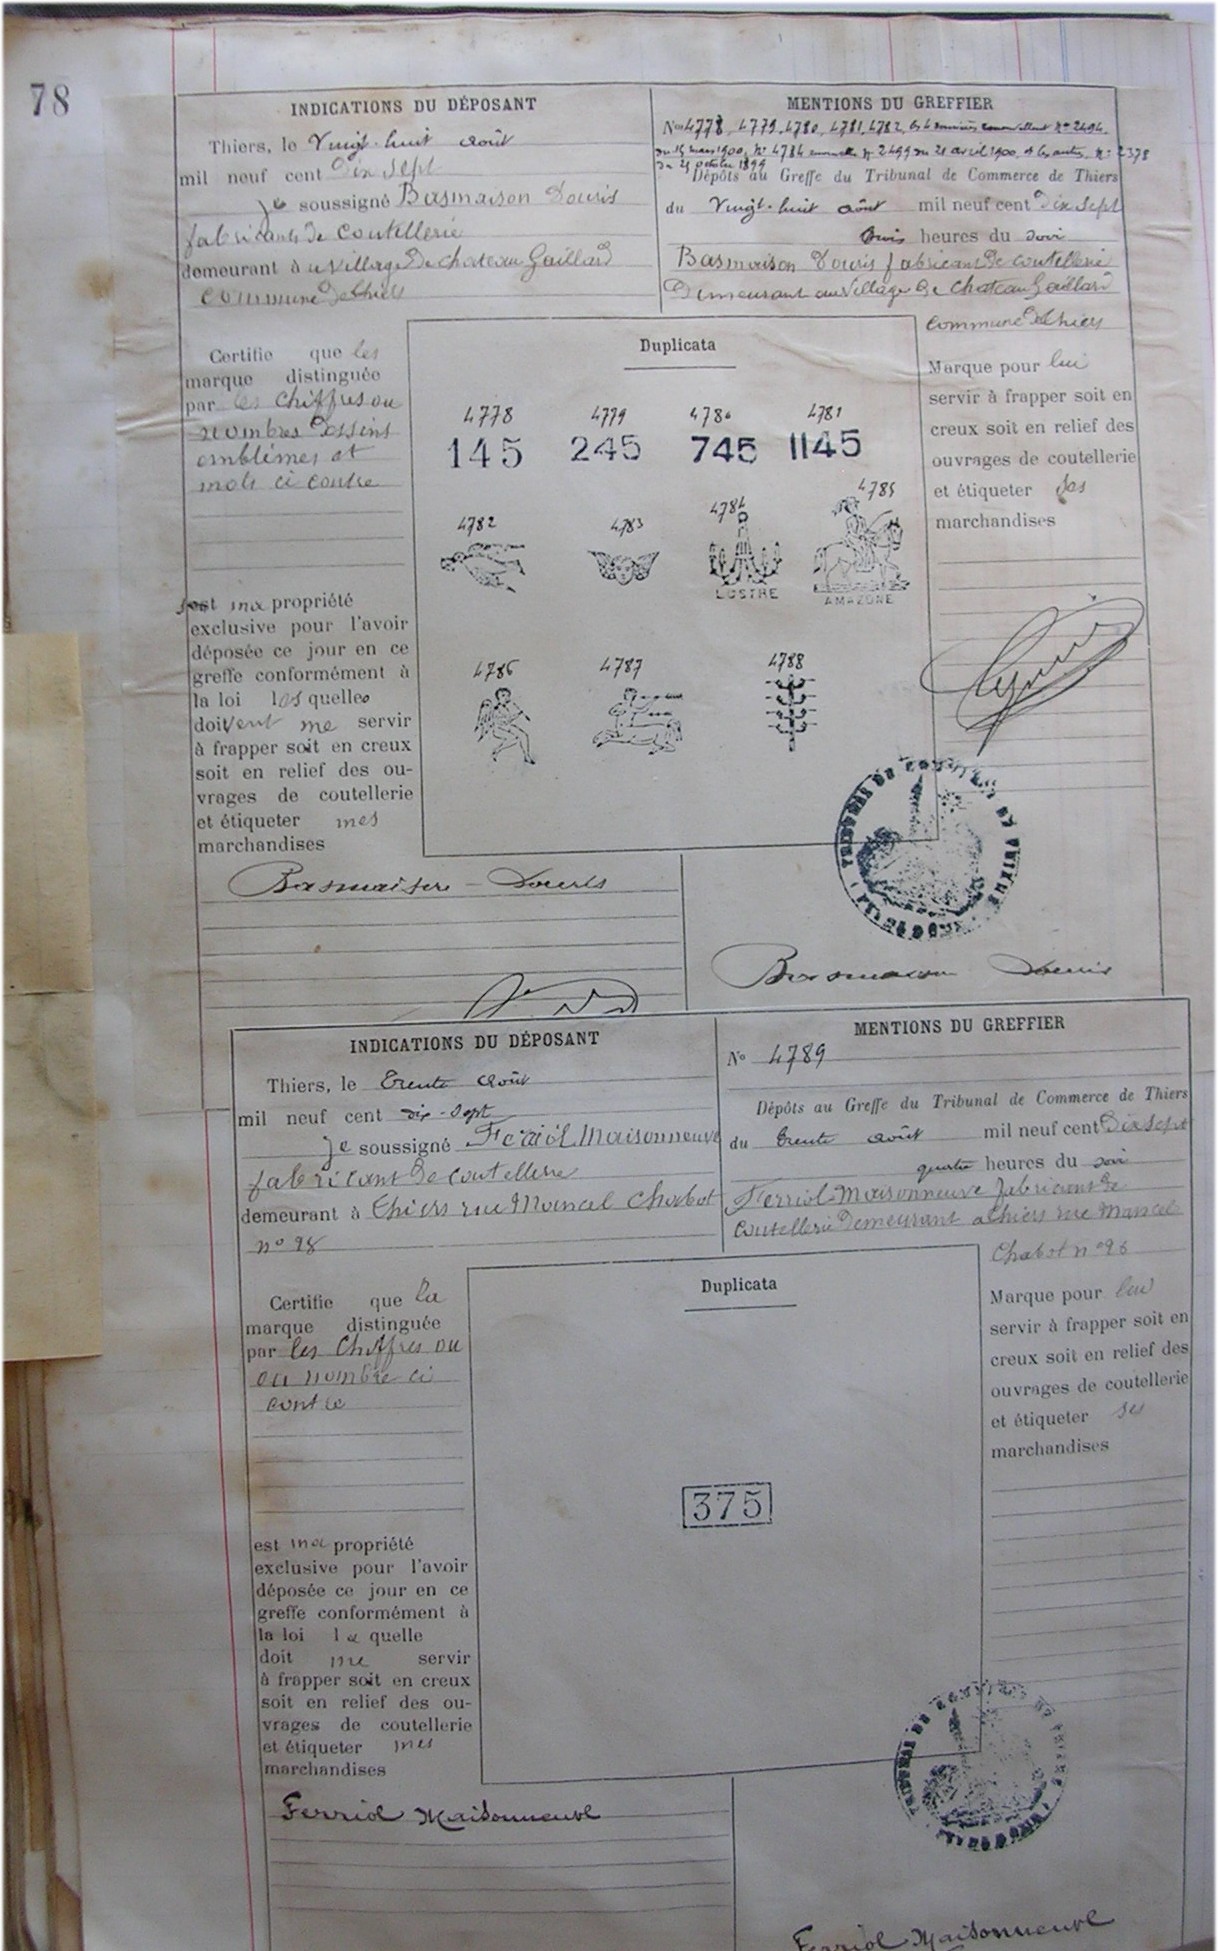 78
INDICATIONS DU DÉPOSANT
Thiers, le Vingt-huit août
mil neuf cent Dix sept
je soussigné Basmaison Douris
fabricant de coutellerie
demeurant au village de chateau Gaillard
commune de Thiers
MENTIONS DU GREFFIER
Nos 4778, 4779, 4780, 4781, 4782, les 4 renouvellent No 2494
du 15 mars 1900, No 4784 No 2499 du 21 avril 1900, et les autres, No 2378
du 25 octobre 1899
Dépôts au Greffe du Tribunal de Commerce de Thiers
du Vingt-huit août mil neuf cent Dix sept
trois heures du soir
Basmaison Douris fabricant de coutellerie
Demeurant au village de chateau Gaillard
commune de Thiers
Certifie que les
marque distinguée
par les chiffres ou
nombres dessins
emblèmes et
mots ci contre
sont ma propriété
exclusive pour l'avoir
déposée ce jour en ce
greffe conformément à
la loi lesquelles
doivent me servir
à frapper soit en creux
soit en relief des ou-
vrages de coutellerie
et étiqueter mes
marchandises
Duplicata
4778 4779 4780 4781
145 245 745 1145
4782 4783 4784 4785
LUSTRE AMAZONE
4786 4787 4788
Marque pour lui
servir à frapper soit en
creux soit en relief des
ouvrages de coutellerie
et étiqueter ses
marchandises
TRIBUNAL DE COMMERCE DE THIERS
Basmaison-Douris
Basmaison Douris
INDICATIONS DU DÉPOSANT
Thiers, le Trente août
mil neuf cent dix-sept
je soussigné Ferriol Maisonneuve
fabricant de coutellerie
demeurant à Thiers rue Mancel Chabot
no 98
MENTIONS DU GREFFIER
No 4789
Dépôts au Greffe du Tribunal de Commerce de Thiers
du trente août mil neuf cent Dix sept
quatre heures du soir
Ferriol-Maisonneuve fabricant de
coutellerie demeurant a Thiers rue Mancel
Chabot no 98
Certifie que la
marque distinguée
par les chiffres ou
ou nombre ci
contre
est ma propriété
exclusive pour l'avoir
déposée ce jour en ce
greffe conformément à
la loi la quelle
doit me servir
à frapper soit en creux
soit en relief des ou-
vrages de coutellerie
et étiqueter mes
marchandises
Duplicata
375
Marque pour lui
servir à frapper soit en
creux soit en relief des
ouvrages de coutellerie
et étiqueter ses
marchandises
TRIBUNAL DE COMMERCE DE THIERS
Ferriol Maisonneuve
Ferriol Maisonneuve